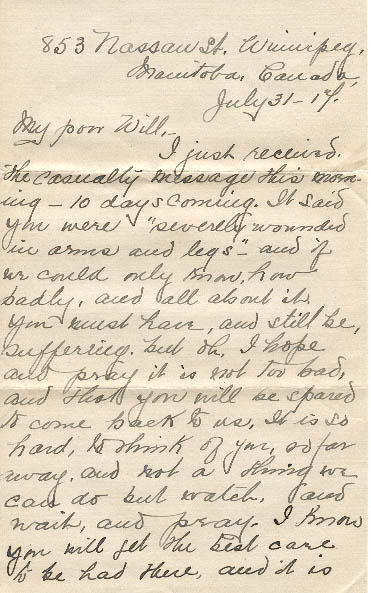 853 Nassau St. Winnipeg,
Manitoba, Canada,
July 31-17.
My poor Will,-
I just received
the casualty message this morn-
ing - 10 days coming. It said
you were "severely wounded
in arms and legs" - and if
we could only know, how
badly, and all about it.
You must have, and still be,
suffering. but oh, I hope
and pray it is not too bad,
and that you will be spared
to come back to us, It is so
hard, to think of you, so far
away. and not a thing we
can do but watch, and
wait, and pray. I know
you will get the best care
to be had there, and it is